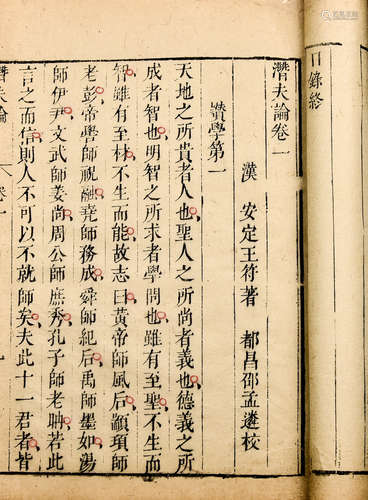 目錄終
潛夫論卷一
漢 安定王符著 都昌邵孟遴校
讚學第一
天地之所貴者人也聖人之所尚者義也德義之所
成者智也明智之所求者學問也雖有至聖不生而
智雖有至材不生而能故志曰黃帝師風后顓頊師
老彭帝嚳師祝融堯師務成舜師紀后禹師墨如湯
師伊尹文武師姜尚周公師庶秀孔子師老聃若此
言之而信則人不可以不就師矣夫此十一君者皆
潛夫論 卷一